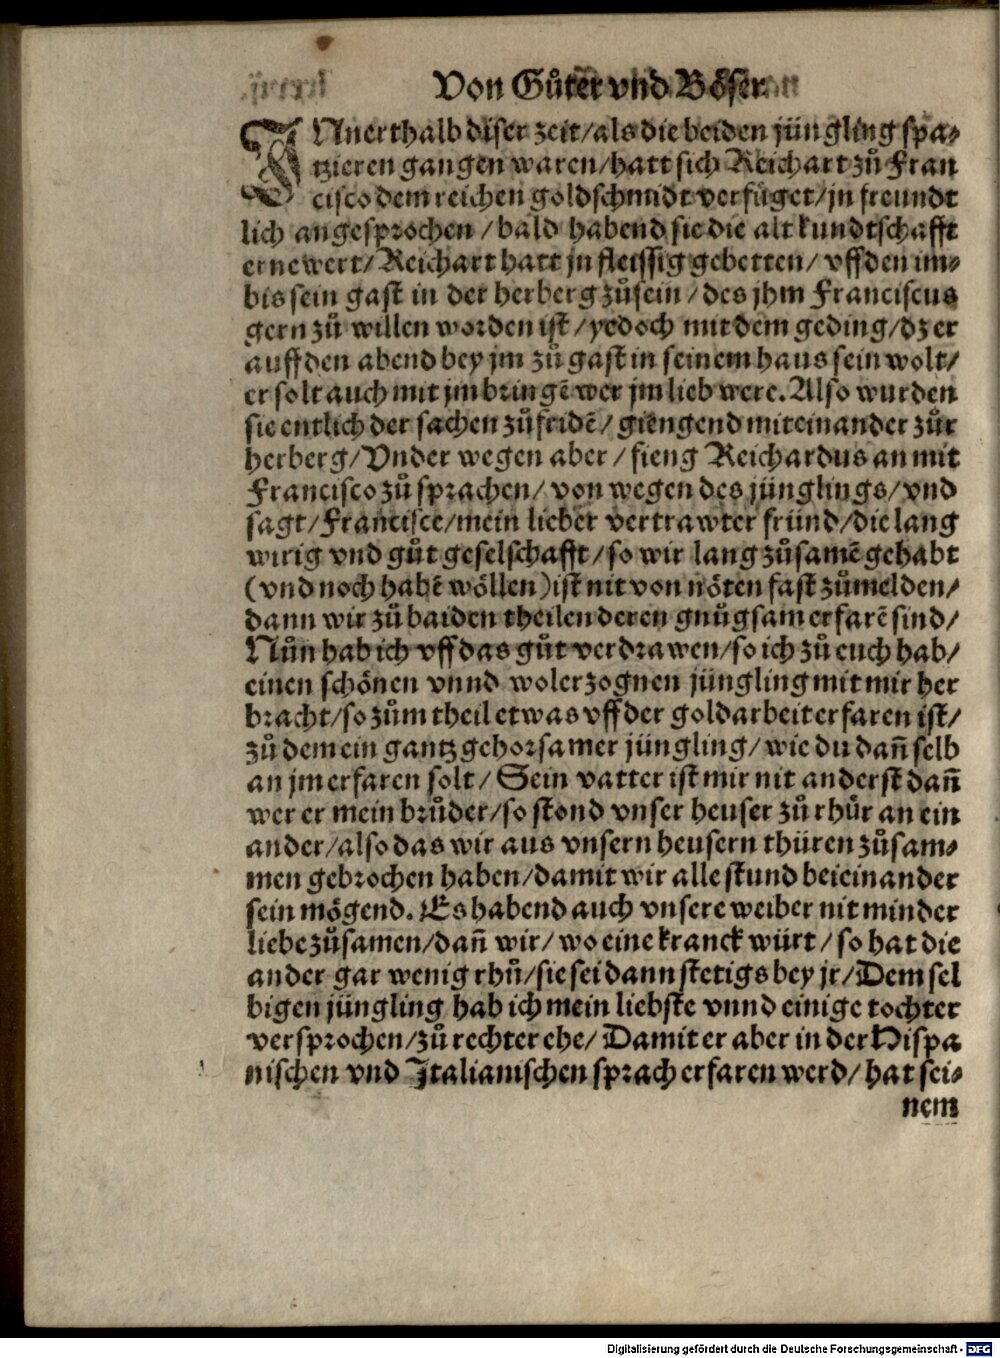 Von Gůter vnd Böser
INnerthalb diser zeit/als die beiden jüngling spa⸗
tzieren gangen waren/hatt sich Reichart zů Fran
cisco dem reichen goldschmidt verfüget/jn freundt
lich angesprochen/bald habend sie die alt kundtschafft
ernewert/Reichart hatt jn fleissig gebetten/vff den im⸗
bis sein gast in der herberg zůsein/des jhm Franciscus
gern zů willen worden ist/yedoch mit dem geding/dz er
auff den abend bey jm zů gast in seinem haus sein wolt/
er solt auch mit jm bringē wer jm lieb were. Also wurden
sie entlich der sachen zůfridē/giengend miteinander zůr
herberg/Vnder wegen aber/fieng Reichardus an mit
Francisco zů sprachen/von wegen des jünglings/vnd
sagt/Francisce/mein lieber vertrawter fründ/die lang
wirig vnd gůt geselschafft/so wir lang zůsamē gehabt
(vnd noch habē wöllen)ist nit von nöten fast zůmelden/
dann wir zů baiden theilen deren gnůgsam erfarē sind/
Nůn hab ich vff das gůt verdrawen/so ich zů euch hab/
einen schönen vnnd wolerzognen jüngling mit mir her
bracht/so zům theil etwas vff der goldarbeit erfaren ist/
zů dem ein gantz gehorsamer jüngling/wie du dañ selb
an jm erfaren solt/Sein vatter ist mir nit anderst dañ
wer er mein brůder/so stond vnser heuser zů rhůr an ein
ander/also das wir aus vnsern heusern thüren zůsam⸗
men gebrochen haben/damit wir alle stund beieinander
sein mögend. Es habend auch vnsere weiber nit minder
liebe zůsamen/dañ wir/wo eine kranck würt/so hat die
ander gar wenig rhů/sie sei dann stetigs bey jr/Dem sel
bigen jüngling hab ich mein liebste vnnd einige tochter
versprochen/zů rechter ehe/Damit er aber in der Hispa
nischen vnd Italianischen sprach erfaren werd/hat sei⸗
nem
Digitalisierung gefördert durch die Deutsche Forschungsgemeinschaft - DFG